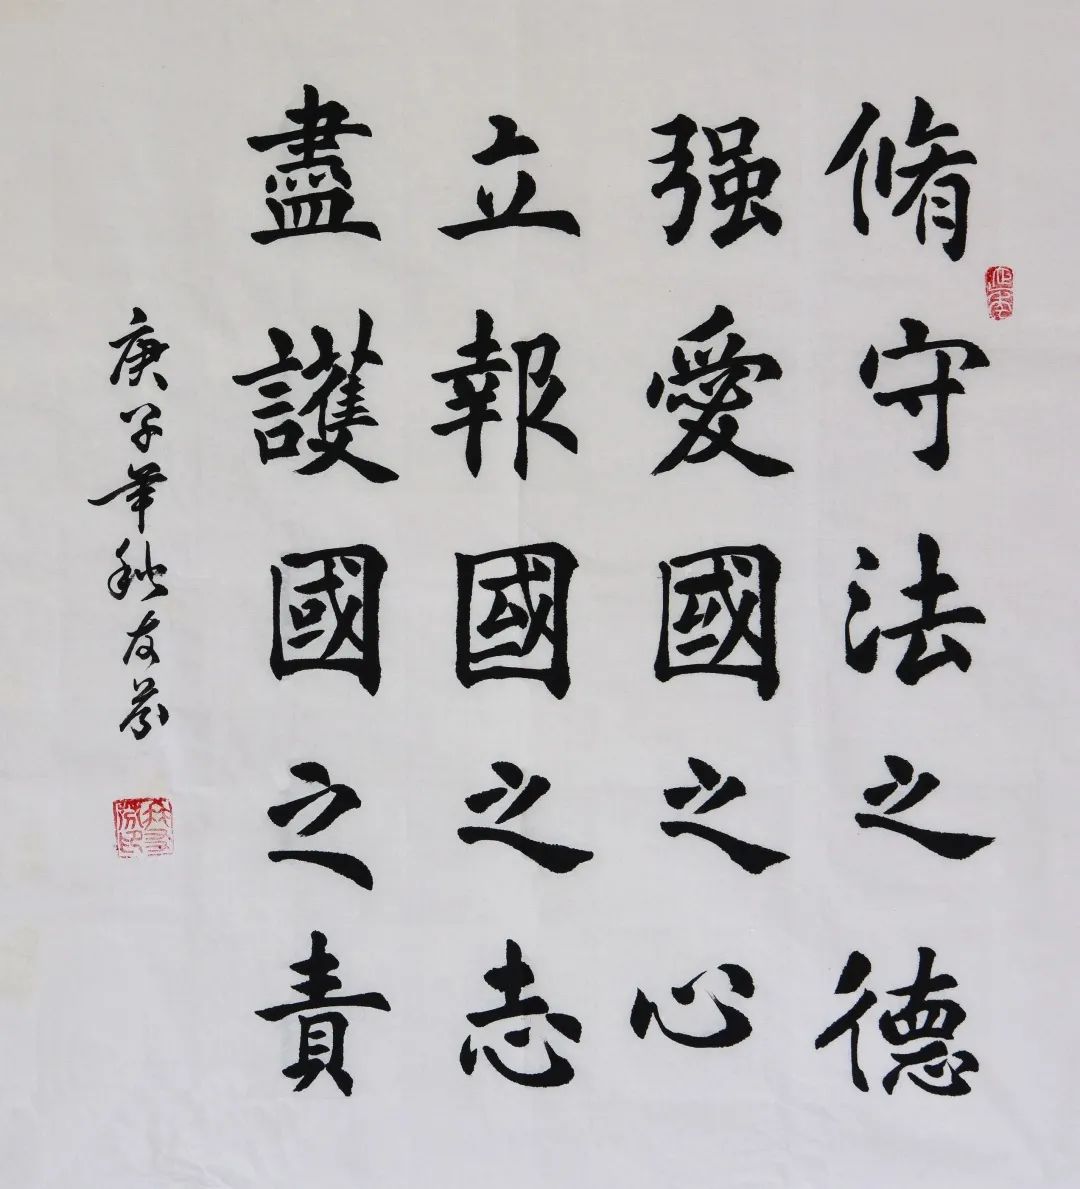 脩守法之德
强愛國之心
立報國之志
盡護國之責
庚子年秋友芬